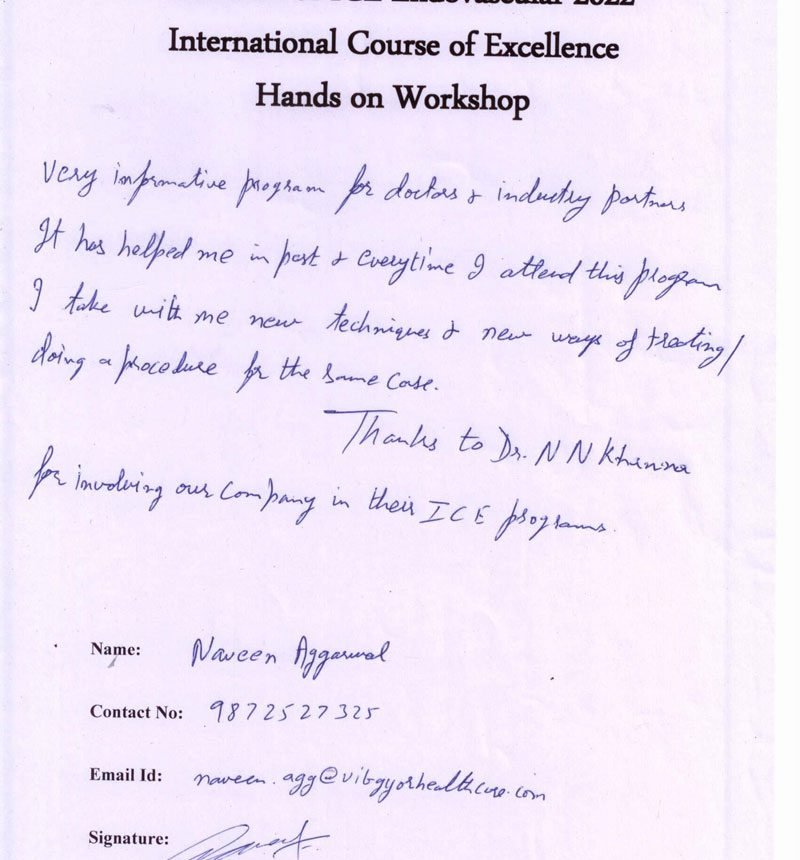 ICE Endovascular 2022
International Course of Excellence
Hands on Workshop
Very informative program for doctors & industry partners
It has helped me in past & everytime I attend this program
I take with me new techniques & new ways of treating/
doing a procedure for the same case.
Thanks to Dr. N N Khanna
for involving our company in their ICE programs.
Name: Naveen Aggarwal
Contact No: 9872527325
Email Id: naveen.agg@vibgyorhealthcare.com
Signature: